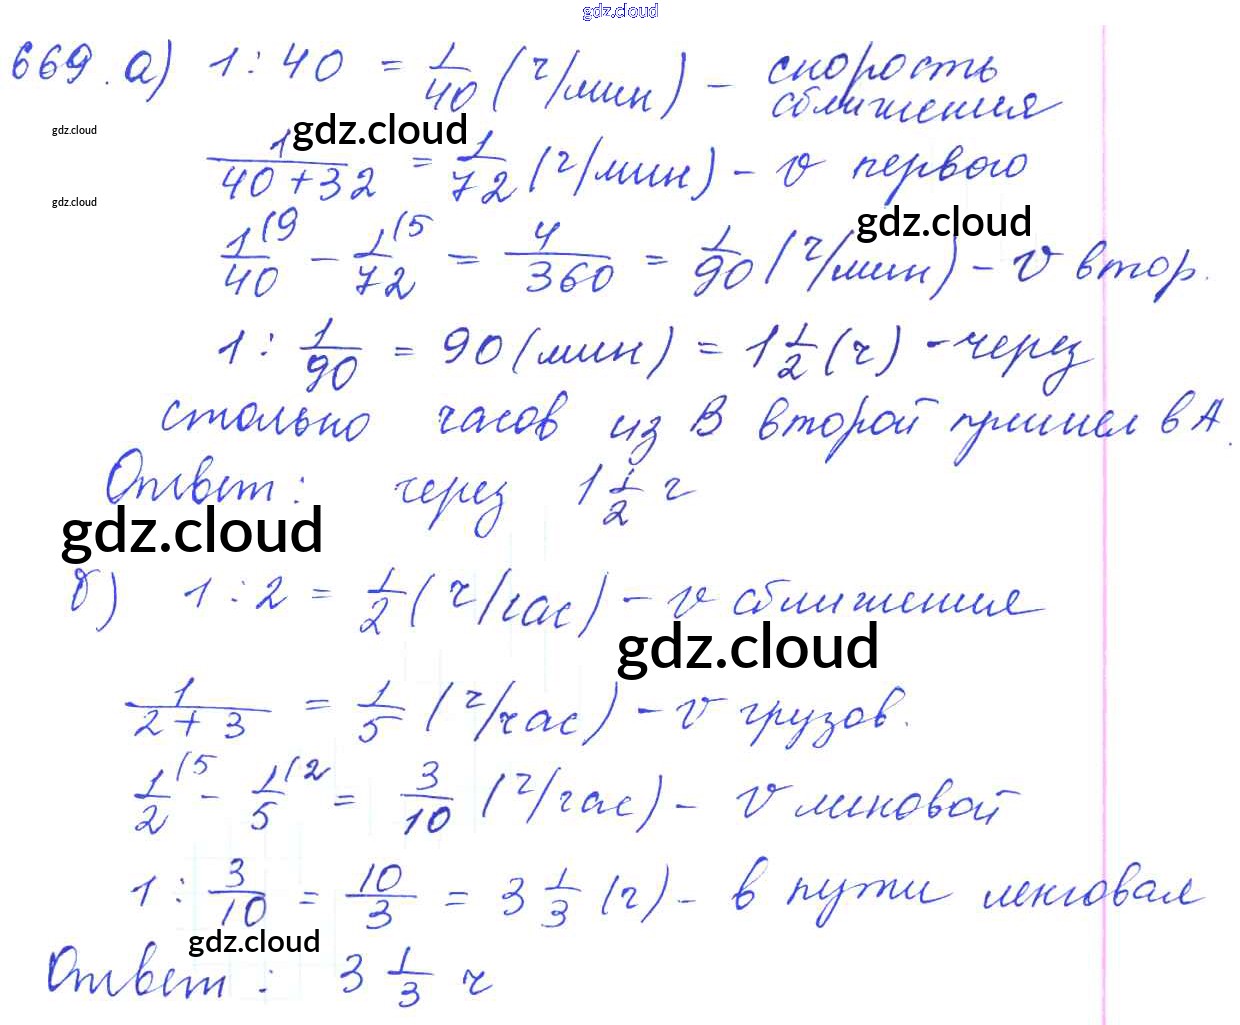 gdz.cloud
669. а) 1 : 40 = 1/40 (ч/мин) – скорость
сближения
gdz.cloud
gdz.cloud
1/(40 + 32) = 1/72 (ч/мин) – v первого
gdz.cloud
gdz.cloud
1/40 (9 – 1/72 (5 = 4/360 = 1/90 (ч/мин) – v втор.
1 : 1/90 = 90 (мин) = 1 1/2 (ч) – через
столько часов из В второй пришел в А.
Ответ: через 1 1/2 ч
gdz.cloud
б) 1 : 2 = 1/2 (ч/час) – v сближения
gdz.cloud
1/(2 + 3) = 1/5 (ч/час) – v грузов.
1/2 (5 – 1/5 (2 = 3/10 (ч/час) – v легковой
1 : 3/10 = 10/3 = 3 1/3 (ч) – в пути легковая
gdz.cloud
Ответ: 3 1/3 ч